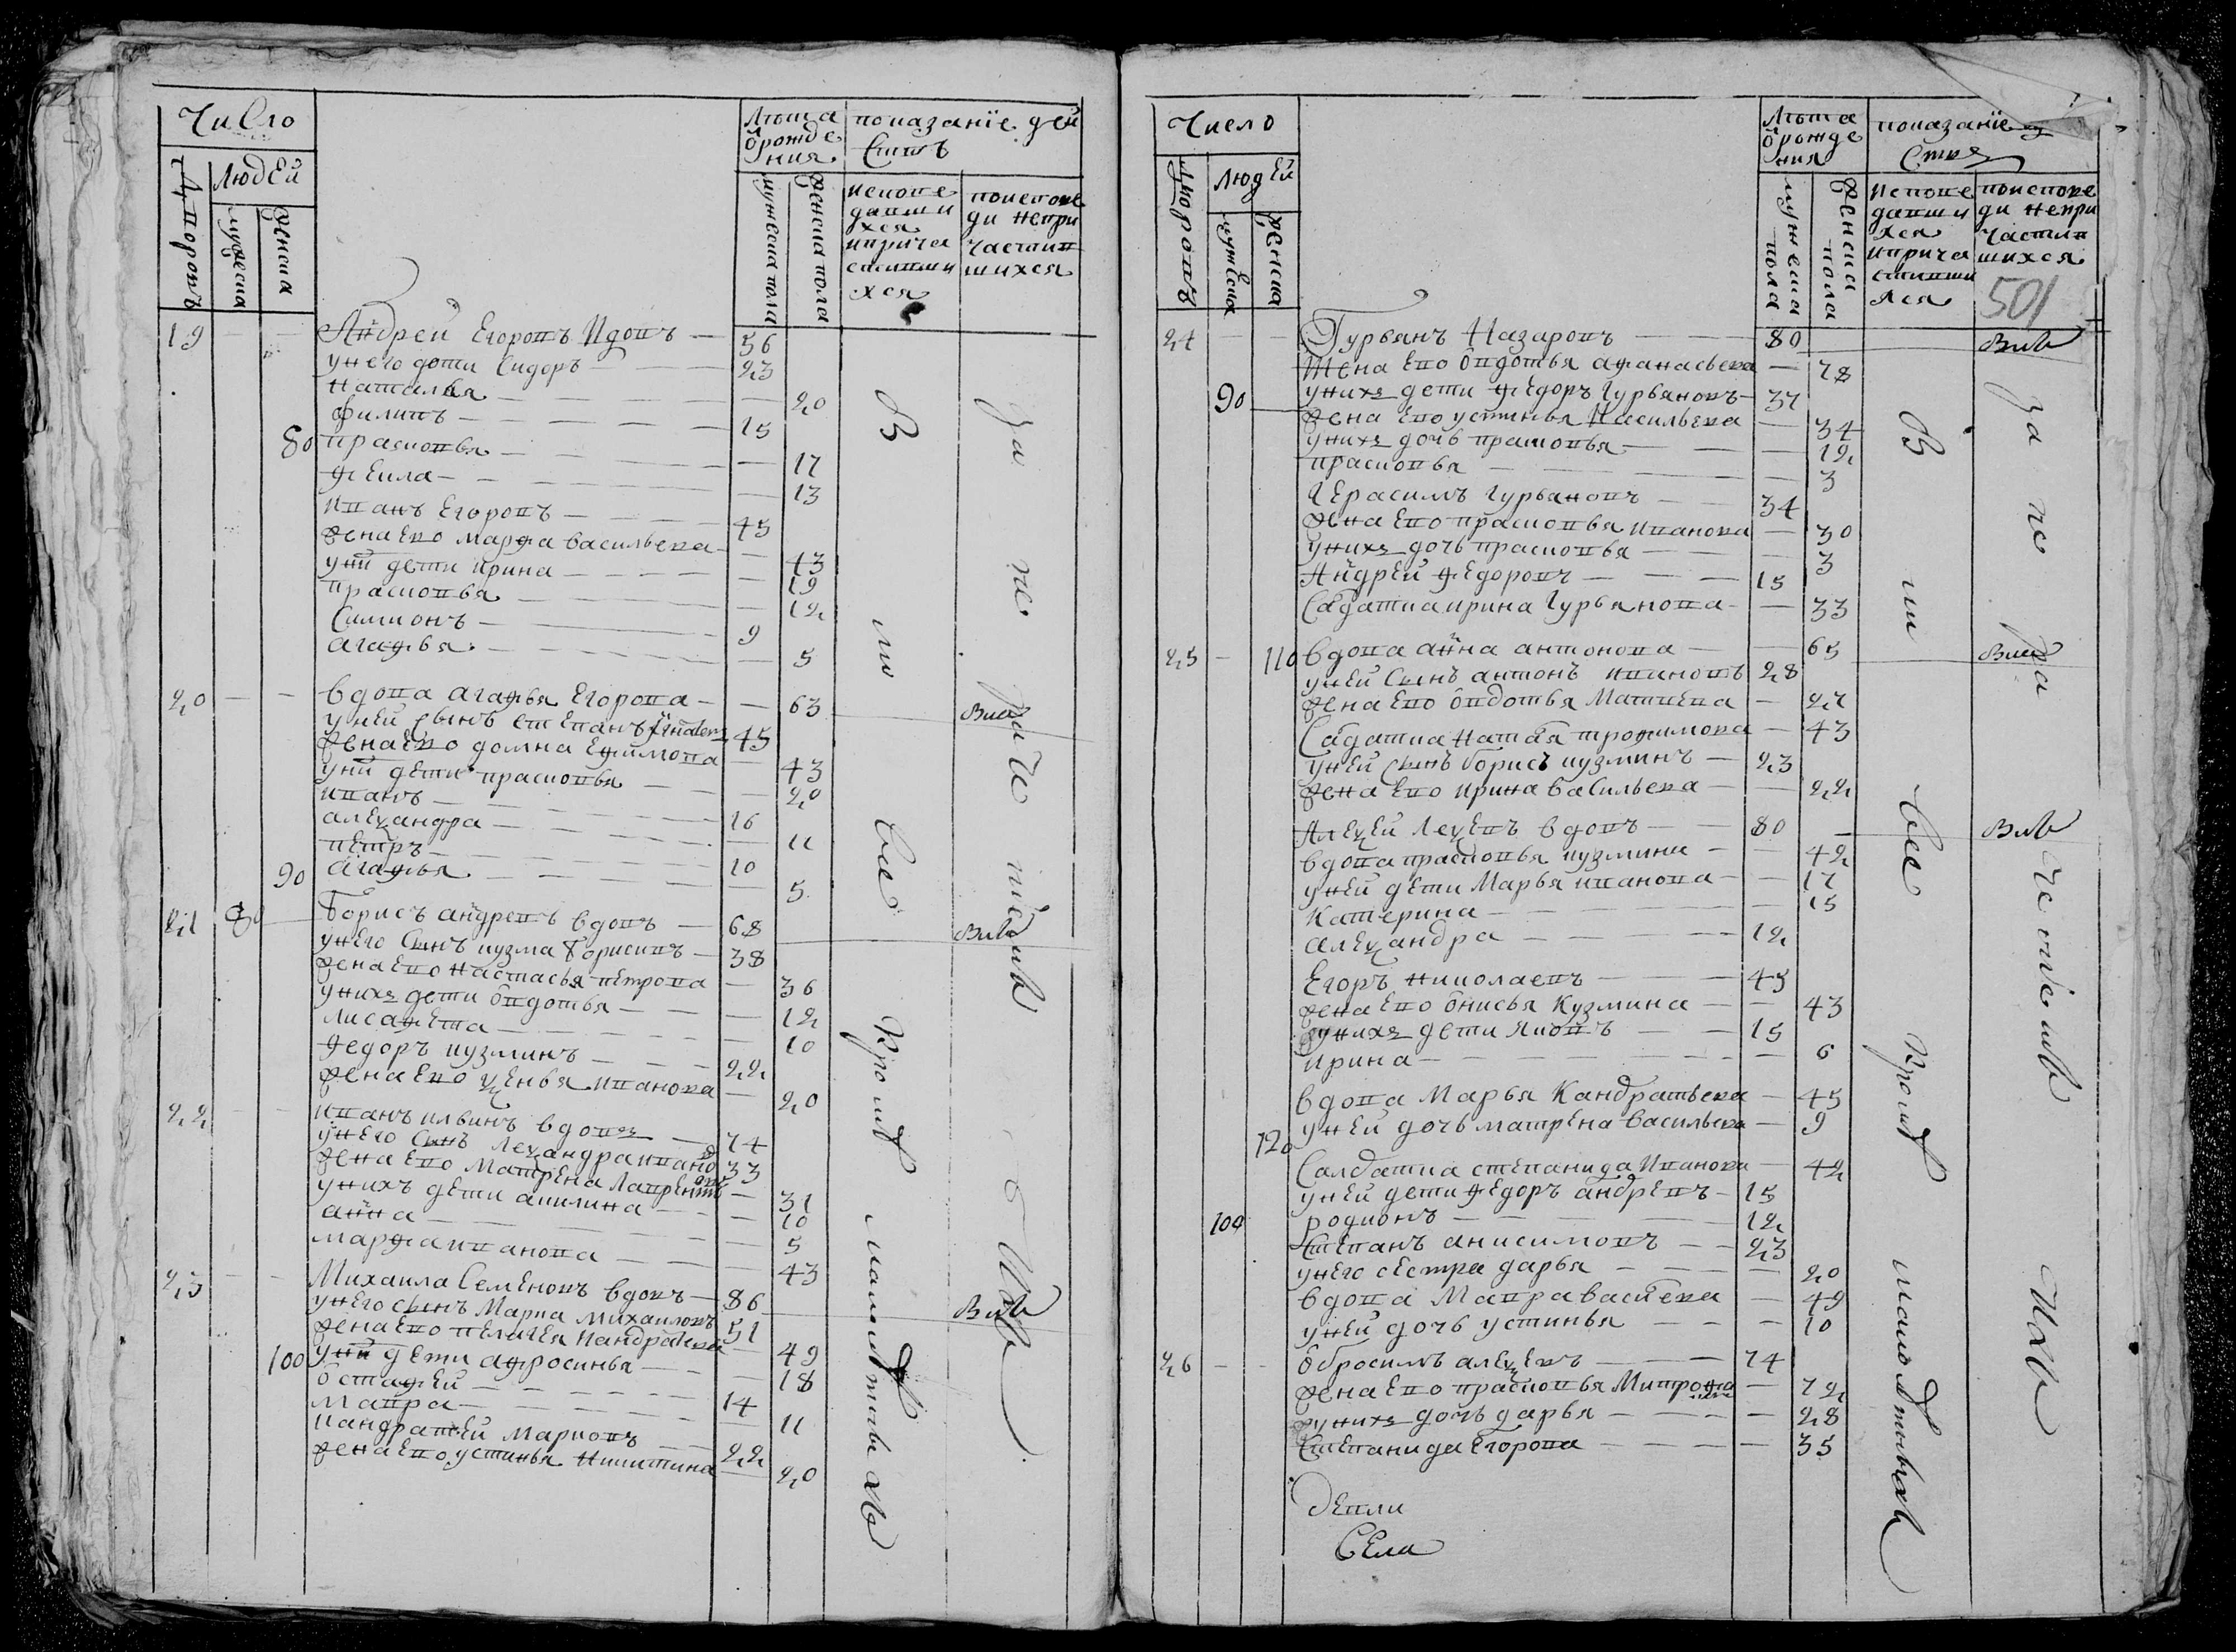 Число
Лѣта
ѿ рожде
ния
показанїе дей
ствъ
Дворовъ
Людей
мужеска
женска
мужеска пола
женска пола
исповѣ
давши
хся
и прича
стивши
хся
по испове
ди не при
частив
шихся
19 — — Андрей Егоровъ Вдовъ — 56
у него дети Сидоръ — 23
Наталья — 20
Филипъ — 15
80 Прасковья — 17
Фекла — 13
Иванъ Егоровъ — 45
жена ево Марфа Васильева — 43
у них дети Ирина — 19
Прасковья — 12
Симионъ — 9
Агафья — 5
20 — — Вдова Агафья Егорова — 63
у ней сынъ Степанъ Игнатевъ 45
жена ево Домна Ефимова — 43
у них дети Прасковья — 20
Иванъ — 16
Алеѯандра — 11
Петръ — 10
90 Агафья — 5
21 80 Борисъ Андревъ вдовъ — 68
у него сынъ Кузма Борисовъ — 38
жена ево Настасья Петрова — 36
у нихъ дети Овдотья — 12
Лисафета — 10
Федоръ Кузминъ — 22
жена ево Ѯенья Иванова — 20
22 — — Иванъ Ильинъ вдовъ — 74
у него сынъ Леѯандра Ивановъ 33
жена ево Матрена Лаврентьева — 31
у нихъ дети Акилина — 10
Анна — 5
Марфа Иванова — 43
23 — — Михаила Семеновъ вдовъ — 86
у него сынъ Марка Михаиловъ 51
жена ево Пелагея Кандратева — 49
100 у них дети Афросинья — 18
Остафей — 14
Мавра — 11
Кандратей Марковъ — 22
жена ево Устинья Никитина — 20
В
то
все
Кромѣ
малолѣтныхъ
За не
приче
стїемъ
Число
Лѣта
ѿ рожде
ния
показанїе
ства
Дворовъ
Людей
мужеска
женска
мужеска
пола
женска
пола
исповѣ
давши
хся
и прича
стивши
хся
по испове
ди не при
частив
шихся
501
24 — — Гурьянъ Назаровъ — 80
Жена ево Овдотья Афанасьева — 78
90 у нихъ дети Федоръ Гурьяновъ — 37
жена ево Устинья Васильева — 34
у нихъ дочь Прасковья — 12
Прасковья — 3
Герасимъ Гурьяновъ — 34
жена ево Прасковья Иванова — 30
у нихъ дочь Прасковья — 3
Андрей Федоровъ — 15
Салдатка Ирина Гурьянова — 33
25 — 110 Вдова Анна Антонова — 65
у ней сынъ Антонъ Ивановъ 28
жена ево Овдотья Матвеева — 27
Салдатка Наталья Трофимова — 43
у ней сынъ Борисъ Кузминъ — 23
жена ево Ирина Васильева — 22
Алеѯей Леѯевъ вдовъ — 80
Вдова Прасковья Кузмина — 42
у ней дети Марья Иванова — 17
Катерина — 15
Алеѯандра — 12
Егоръ Николаевъ — 45
жена ево Онисья Кузмина — 43
у нихъ дети Яковъ — 15
Ирина — 6
Вдова Марья Кандратьева — 45
у ней дочь Матрена Васильева — 9
120 Салдатка Степанида Иванова — 42
у ней дети Федоръ Андревъ — 15
100 Родионъ — 12
Степанъ Анисимовъ — 23
у него сестра Дарья — 20
Вдова Мавра Васильева — 49
у ней дочь Устинья — 10
26 — — Обросимъ Алеѯевъ — 74
жена ево Прасковья Митрофанова — 72
у нихъ дочь Дарья — 28
Степанида Егорова — 35
села
В
ти
все
Кромѣ
малолѣтныхъ
За не
при
честїемъ